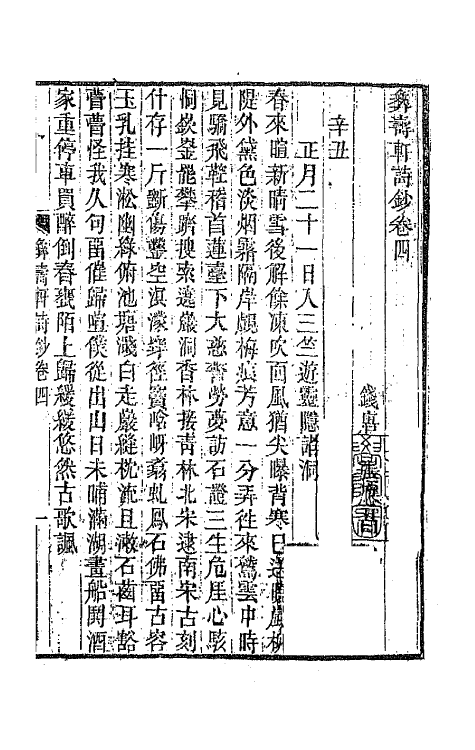 彝壽軒詩鈔卷四
錢唐
辛丑
正月二十一日入三竺遊靈隱諸洞
春來暄新晴雪後解餘凍吹面風猶尖曝背寒已送
隄外黛色淡烟霏隔岸覷梅痕芳意一分弄往來鷲雲中時
見驕飛鞚稽首蓮臺下大慈警勞夢訪石證三生危厓心駭
恫嵚崟罷攀躋搜索選巖洞香林接青林北宋逮南宋古刻
什存一斤斲傷鑿空滇濛穿徑竇唅呀翥虬鳳石佛留古容
玉乳挂寒淞幽綠俯池塘淺白走巖縫枕流且漱石齒耳豁
瞢瞢怪我久句留催歸喧僕從出山日未晡滿湖畫船閧酒
家重停車買醉倒春甕陌上歸緩緩悠然古歌諷
彝壽軒詩鈔卷四
一